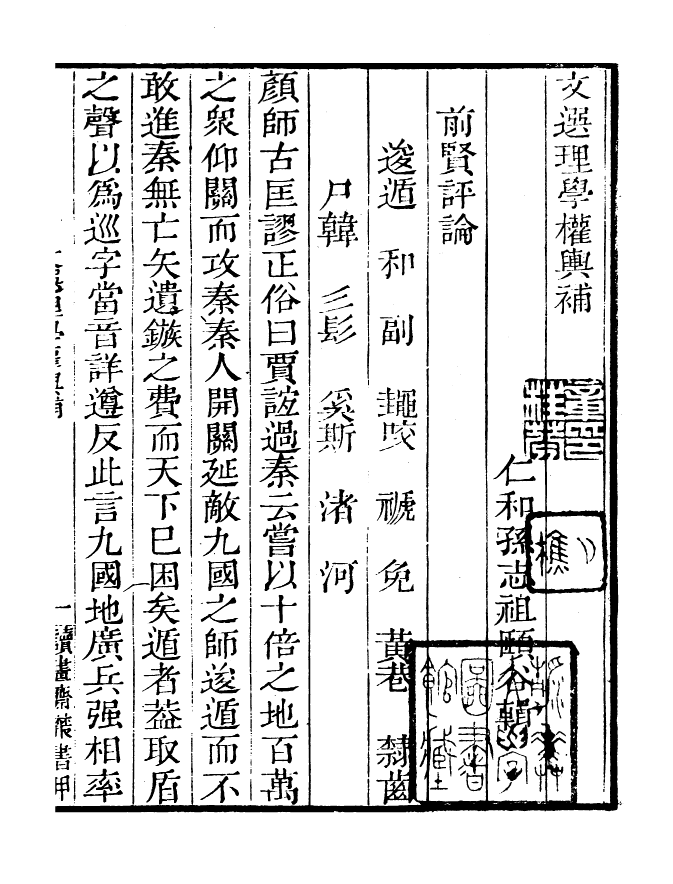 文選理學權輿補
仁和孫志祖頤谷輯
前賢評論
逡遁　和　副　蠅咬　褫　免　黃巷　隸齒
尸韓　三髟　奚斯　渚　河
顏師古匡謬正俗曰賈誼過秦云嘗以十倍之地百萬
之衆仰關而攻秦秦人開關延敵九國之師逡遁而不
敢進秦無亡矢遺鏃之費而天下已困矣遁者蓋取盾
之聲以爲巡字當音詳遵反此言九國地廣兵强相率
文選理學權輿補　一　讀畫齋叢書甲